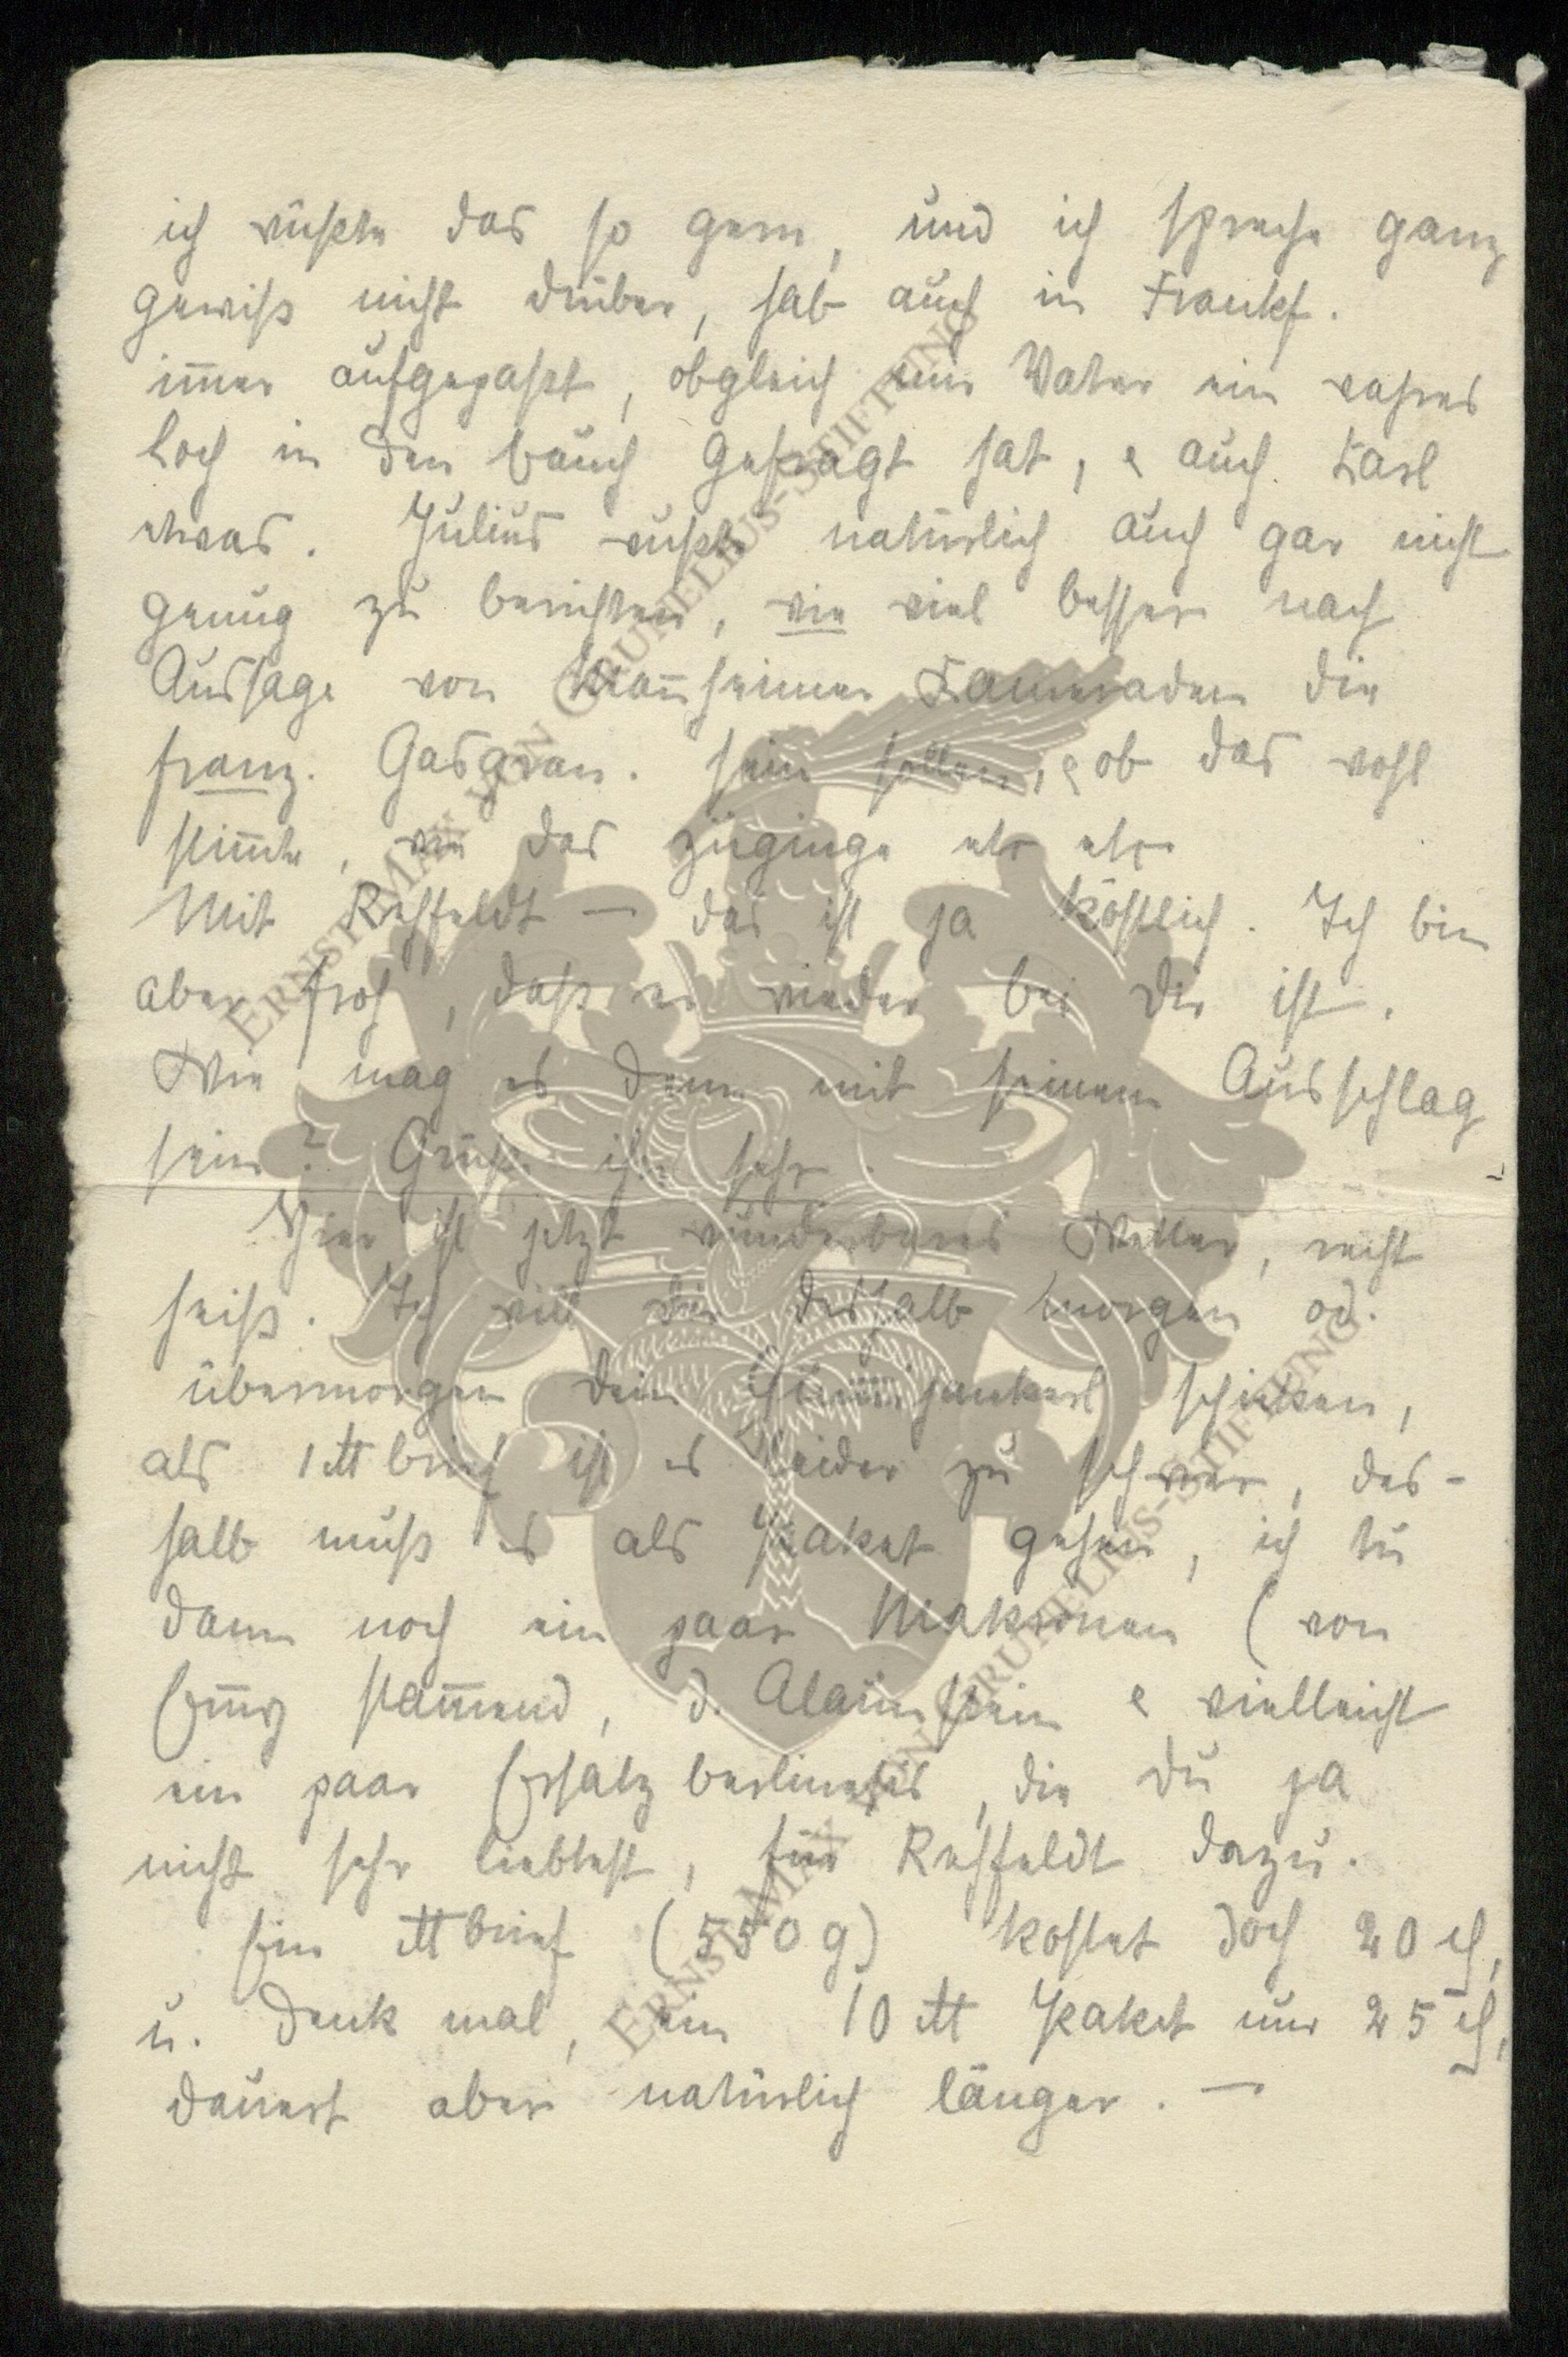 ich wüßte das so gern, und ich spreche ganz
gewiß nicht drüber, hab auch in Frankf.
im̅er aufgepaßt, obgleich mir Vater ein wahres
Loch in den Bauch gefragt hat, & auch Karl
etwas. Julius wußte natürlich auch gar nicht
genug zu berichten, wie viel besser nach
Aussage von Man̅heimer Kameraden die
franz. Gasgran. sein sollen, & ob das wohl
stim̅te, wie das zuginge etc etc.
Mit Rehfeldt — das ist ja köstlich. Ich bin
aber froh, daß er wieder bei dir ist.
Wie mag es denn mit seinem Ausschlag
sein? Grüße ihn sehr.
Hier ist jetzt wunderbares Wetter, recht
heiß. Ich will dir deshalb morgen od.
übermorgen dein schicken,
als 1 ℔ brief ist es leider zu schwer, des-
halb muß es als Paket gehen, ich tu
dann noch ein paar Makronen (von
Em̅y stam̅end, d. Alaunstein & vielleicht
ein paar Ersatzberliner, die du ja
nicht sehr liebtest, für Rehfeldt dazu.
Ein ℔brief (550 g) kostet doch 20 ₰,
u. denk mal, ein 10 ℔ Paket nur 25 ₰,
dauert aber natürlich länger. —
ERNST MAX VON GRUNELIUS-STIFTUNG
ERNST MAX VON GRUNELIUS-STIFTUNG